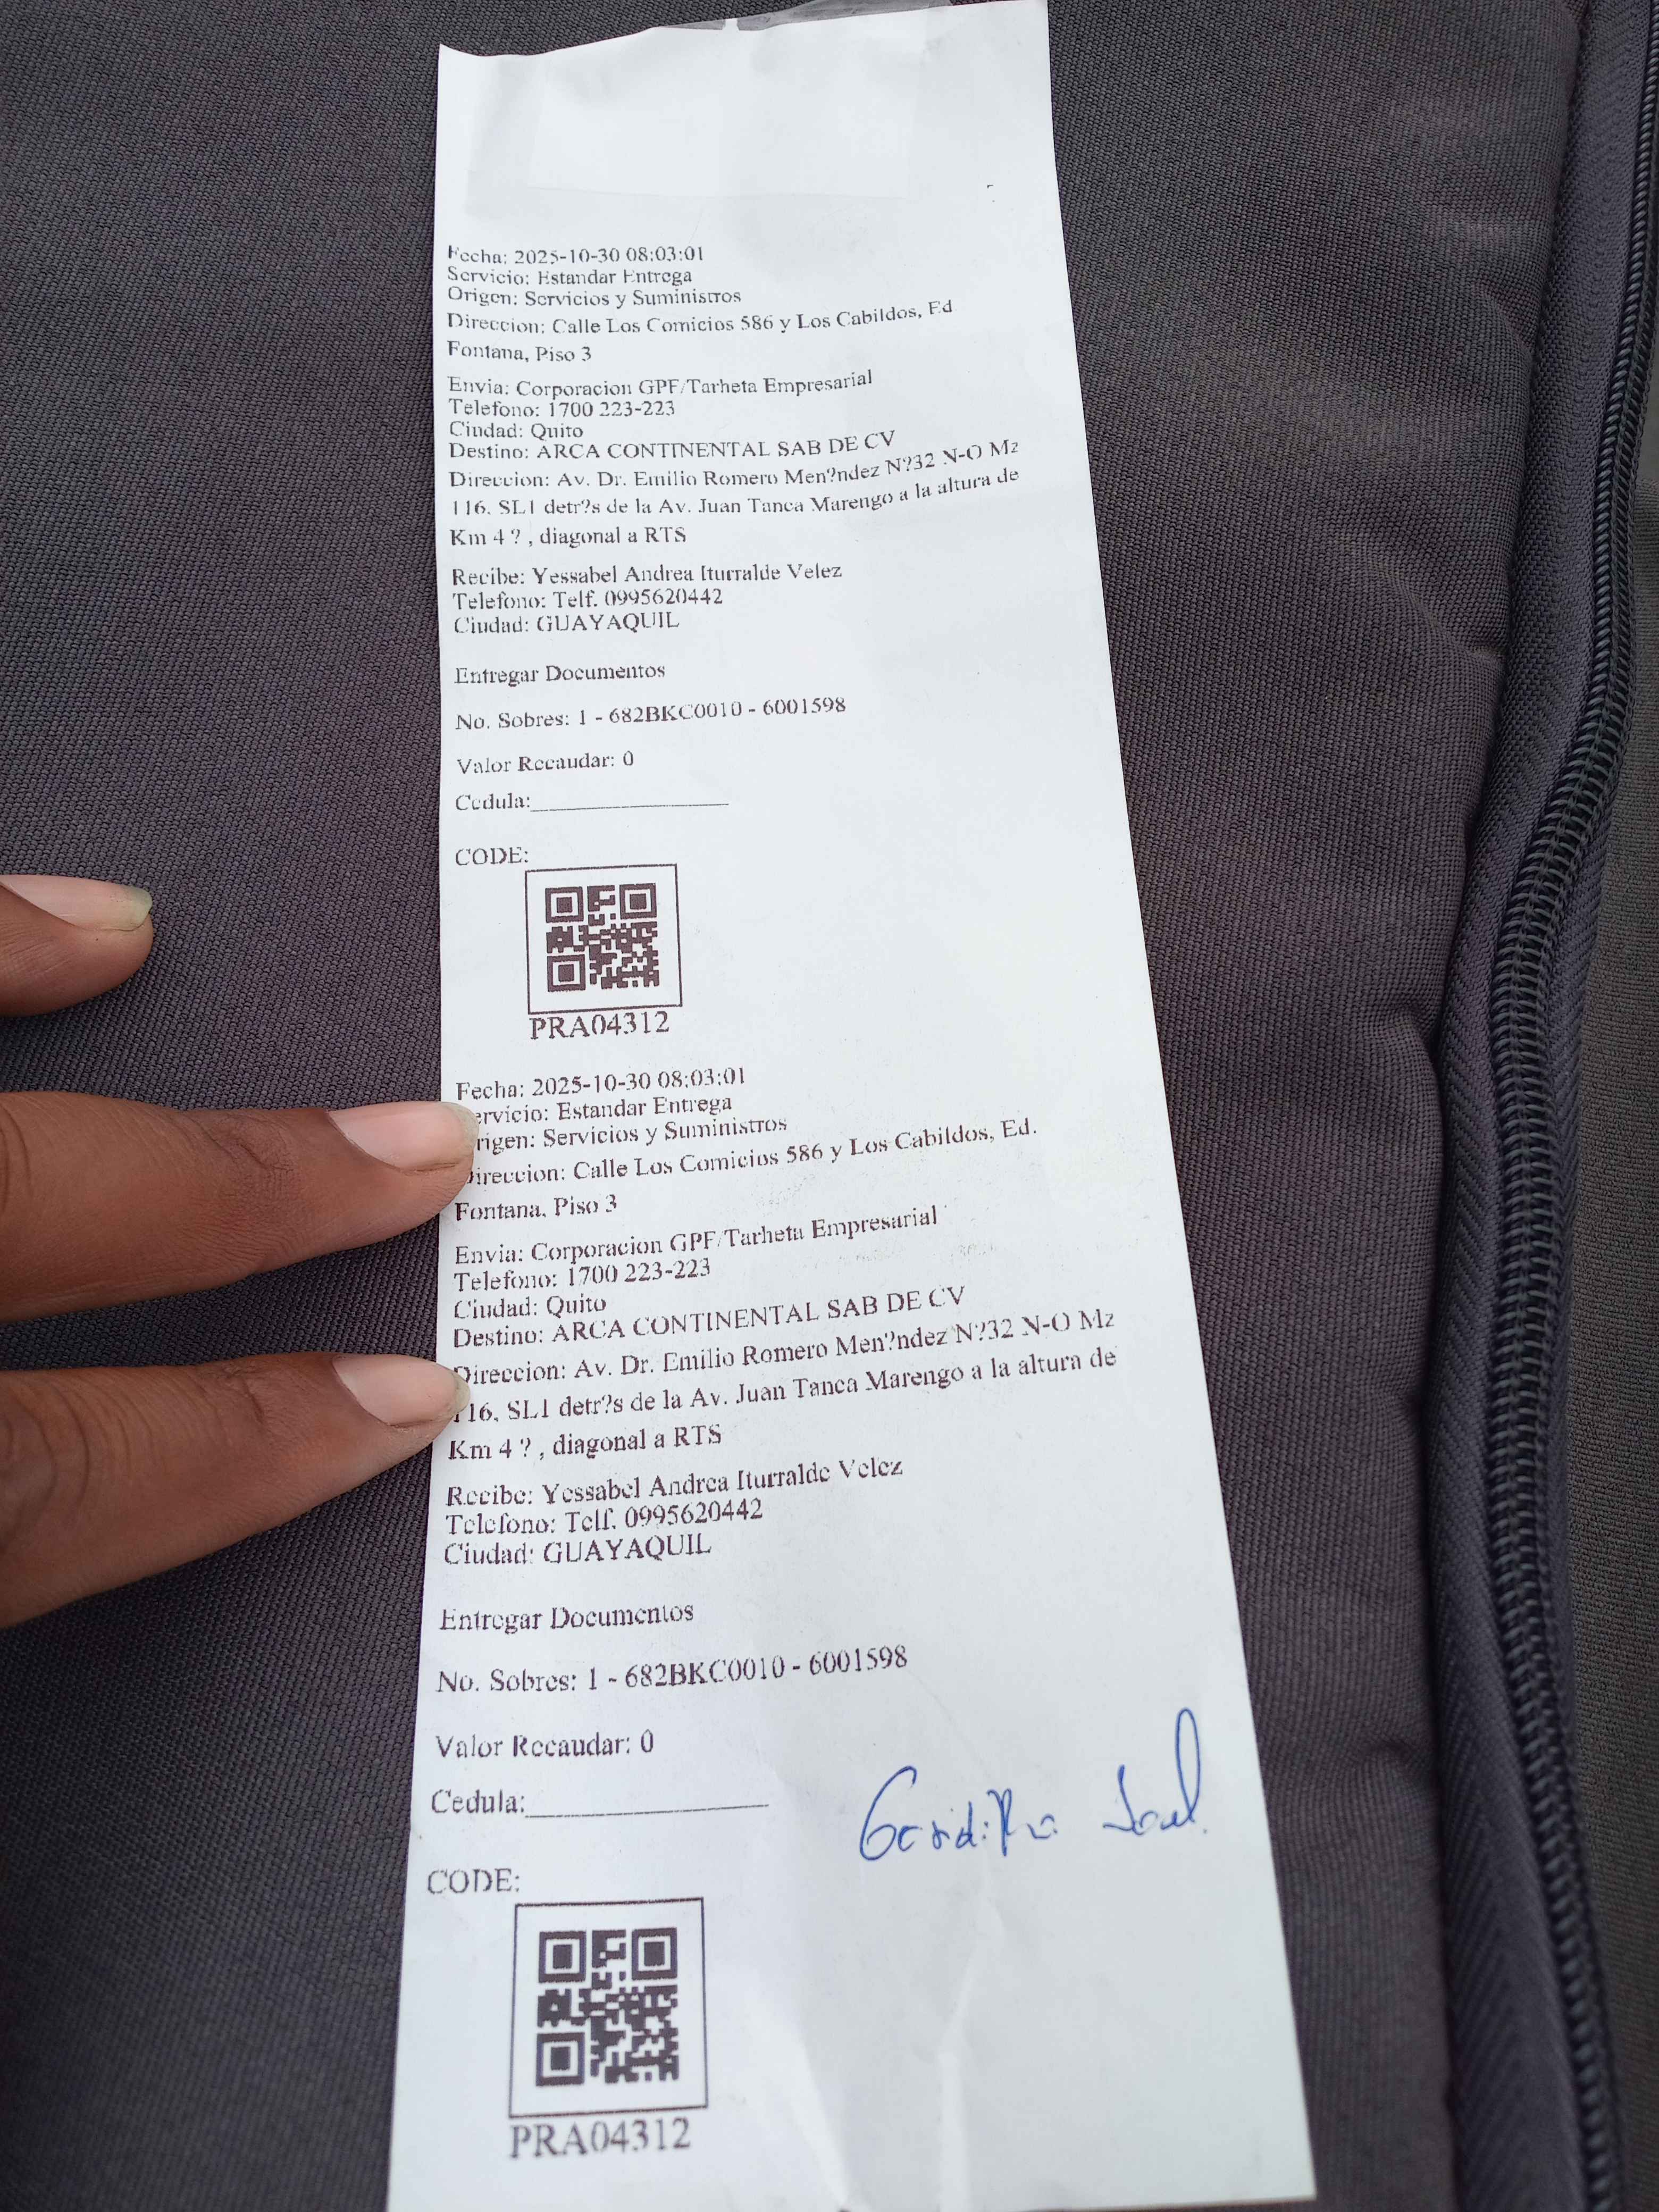 Fecha: 2025-10-30 08:03:01
Servicio: Estandar Entrega
Origen: Servicios y Suministros
Direccion: Calle Los Comicios 586 y Los Cabildos, Ed
Fontana, Piso 3
Envia: Corporacion GPF/Tarheta Empresarial
Telefono: 1700 223-223
Ciudad: Quito
Destino: ARCA CONTINENTAL SAB DE CV
Direccion: Av. Dr. Emilio Romero Men?ndez N?32 N-O Mz
116. SL1 detr?s de la Av. Juan Tanca Marengo a la altura de
Km 4 ? , diagonal a RTS
Recibe: Yessabel Andrea Iturralde Velez
Telefono: Telf. 0995620442
Ciudad: GUAYAQUIL
Entregar Documentos
No. Sobres: 1 - 682BKC0010 - 6001598
Valor Recaudar: 0
Cedula:
CODE:
PRA04312
Fecha: 2025-10-30 08:03:01
ervicio: Estandar Entrega
rigen: Servicios y Suministros
ireccion: Calle Los Comicios 586 y Los Cabildos, Ed.
Fontana, Piso 3
Envia: Corporacion GPF/Tarheta Empresarial
Telefono: 1700 223-223
Ciudad: Quito
Destino: ARCA CONTINENTAL SAB DE CV
Direccion: Av. Dr. Emilio Romero Men?ndez N?32 N-O Mz
116, SL1 detr?s de la Av. Juan Tanca Marengo a la altura de
Km 4 ? , diagonal a RTS
Recibe: Yessabel Andrea Iturralde Velez
Telefono: Telf. 0995620442
Ciudad: GUAYAQUIL
Entregar Documentos
No. Sobres: 1 - 682BKC0010 - 6001598
Valor Recaudar: 0
Cedula:
CODE:
PRA04312